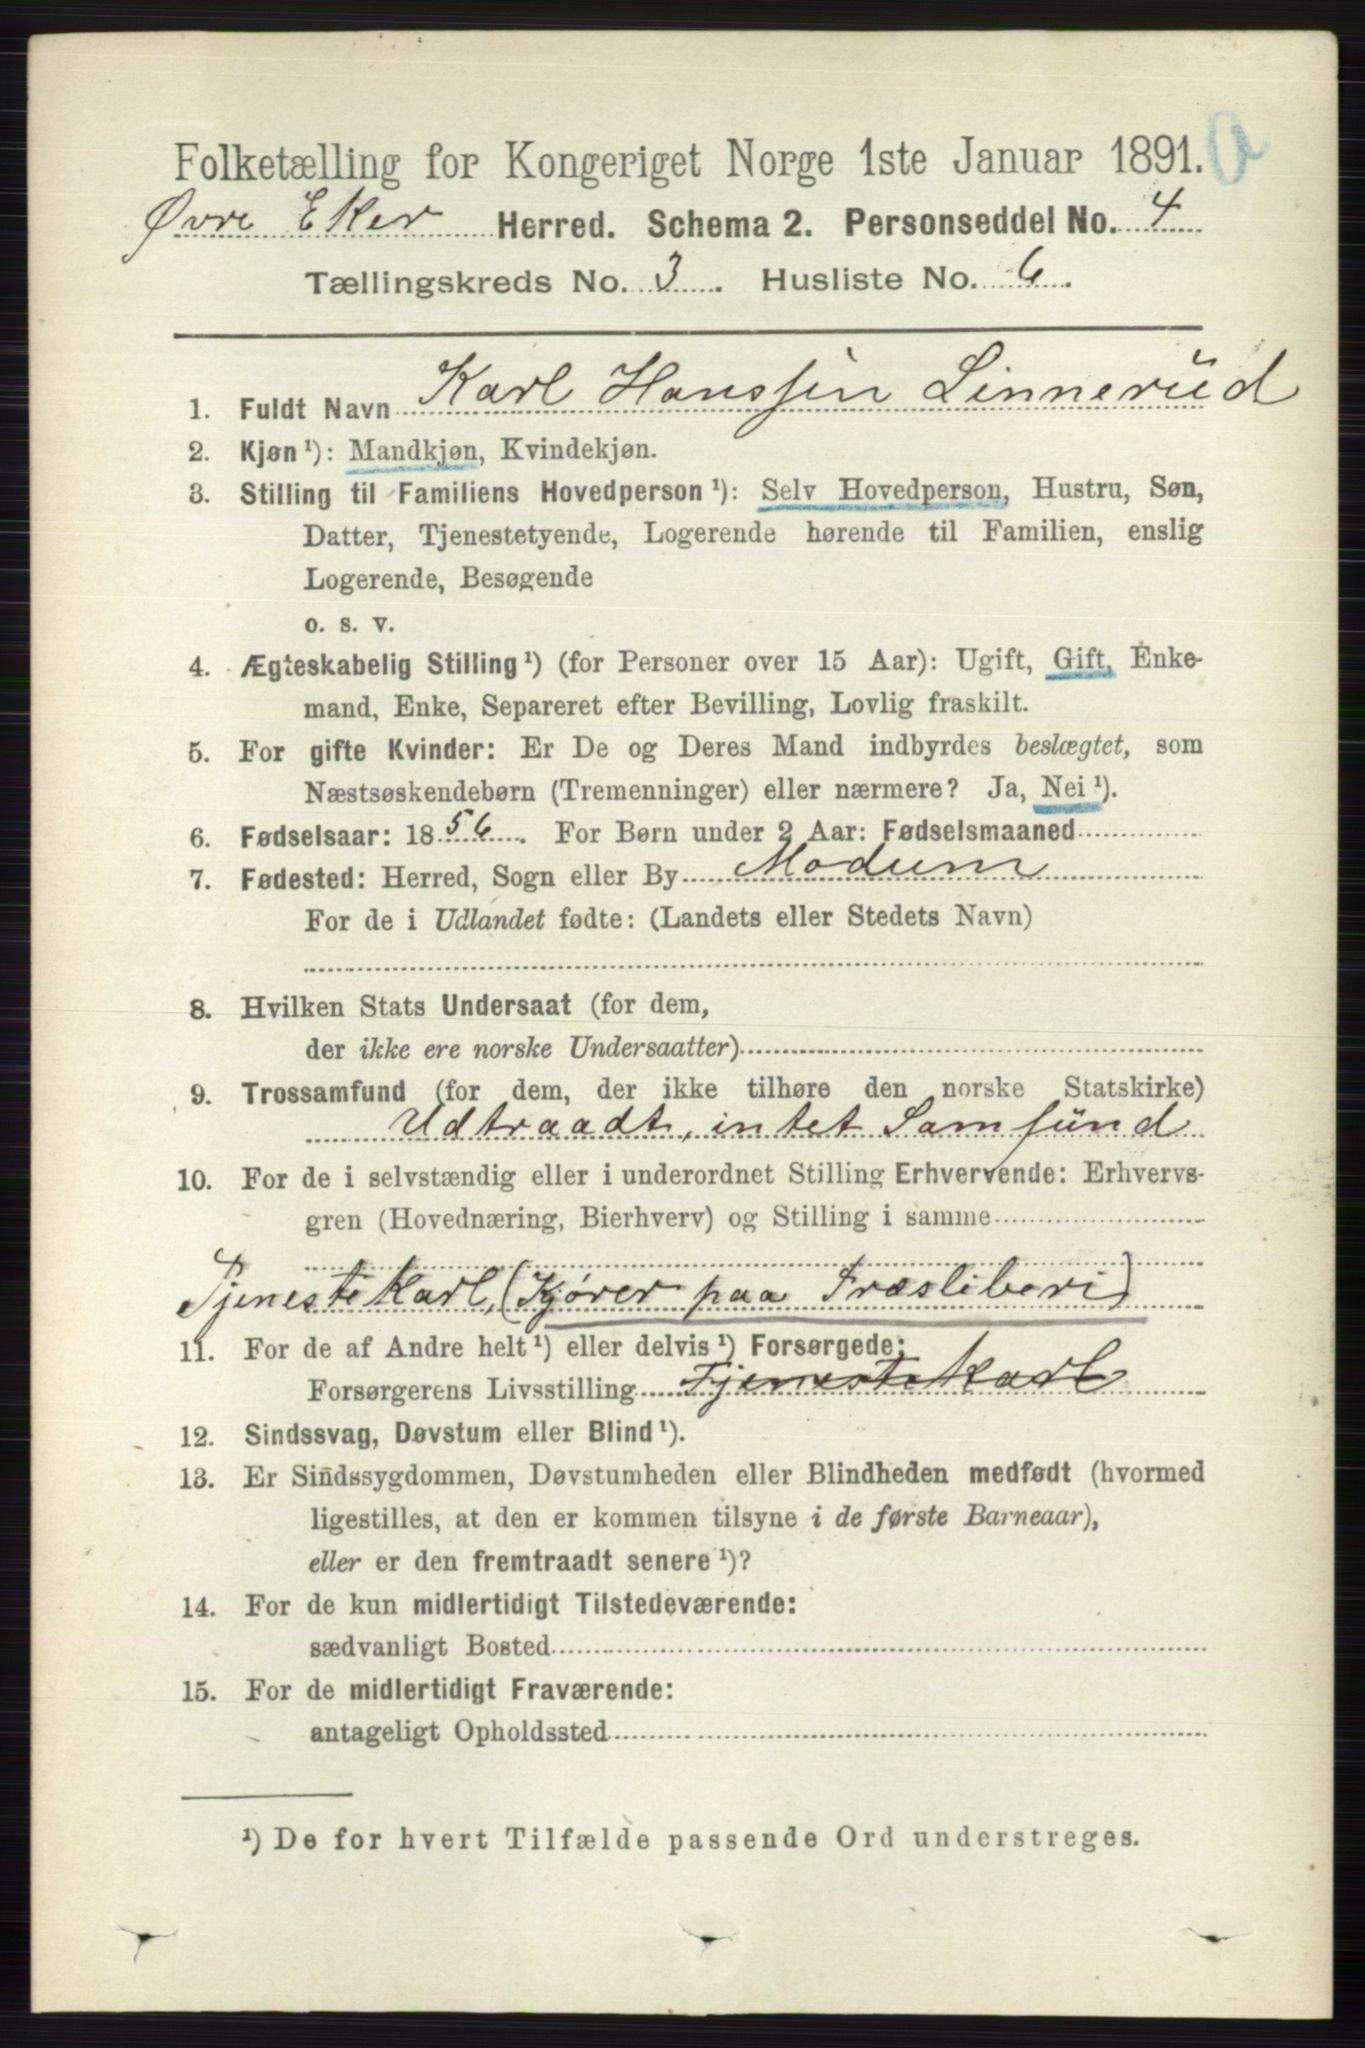 Folketælling for Kongeriget Norge 1ste Januar 1891.
Øvre Eker Herred. Schema 2. Personseddel No. 4
Tællingskreds No. 3. Husliste No. 6.
1. Fuldt Navn Karl Hanssen Linnerud
2. Kjøn ¹): Mandkjøn, Kvindekjøn.
3. Stilling til Familiens Hovedperson ¹): Selv Hovedperson, Hustru, Søn,
Datter, Tjenestetyende, Logerende hørende til Familien, enslig
Logerende, Besøgende
o. s. v.
4. Ægteskabelig Stilling ¹) (for Personer over 15 Aar): Ugift, Gift, Enke-
mand, Enke, Separeret efter Bevilling, Lovlig fraskilt.
5. For gifte Kvinder: Er De og Deres Mand indbyrdes beslægtet, som
Næstsøskendebørn (Tremenninger) eller nærmere? Ja, Nei ¹).
6. Fødselsaar: 1856. For Børn under 2 Aar: Fødselsmaaned
7. Fødested: Herred, Sogn eller By Modum
For de i Udlandet fødte: (Landets eller Stedets Navn)
8. Hvilken Stats Undersaat (for dem,
der ikke ere norske Undersaatter)
9. Trossamfund (for dem, der ikke tilhøre den norske Statskirke)
Udtraadt, intet Samfund
10. For de i selvstændig eller i underordnet Stilling Erhvervende: Erhvervs-
gren (Hovednæring, Bierhverv) og Stilling i samme
Tjenestekarl, (Kjører paa Træsliberi)
11. For de af Andre helt ¹) eller delvis ¹) Forsørgede:
Forsørgerens Livsstilling Tjenestekarl
12. Sindssvag, Døvstum eller Blind ¹).
13. Er Sindssygdommen, Døvstumheden eller Blindheden medfødt (hvormed
ligestilles, at den er kommen tilsyne i de første Barneaar),
eller er den fremtraadt senere ¹)?
14. For de kun midlertidigt Tilstedeværende:
sædvanligt Bosted
15. For de midlertidigt Fraværende:
antageligt Opholdssted
¹) De for hvert Tilfælde passende Ord understreges.